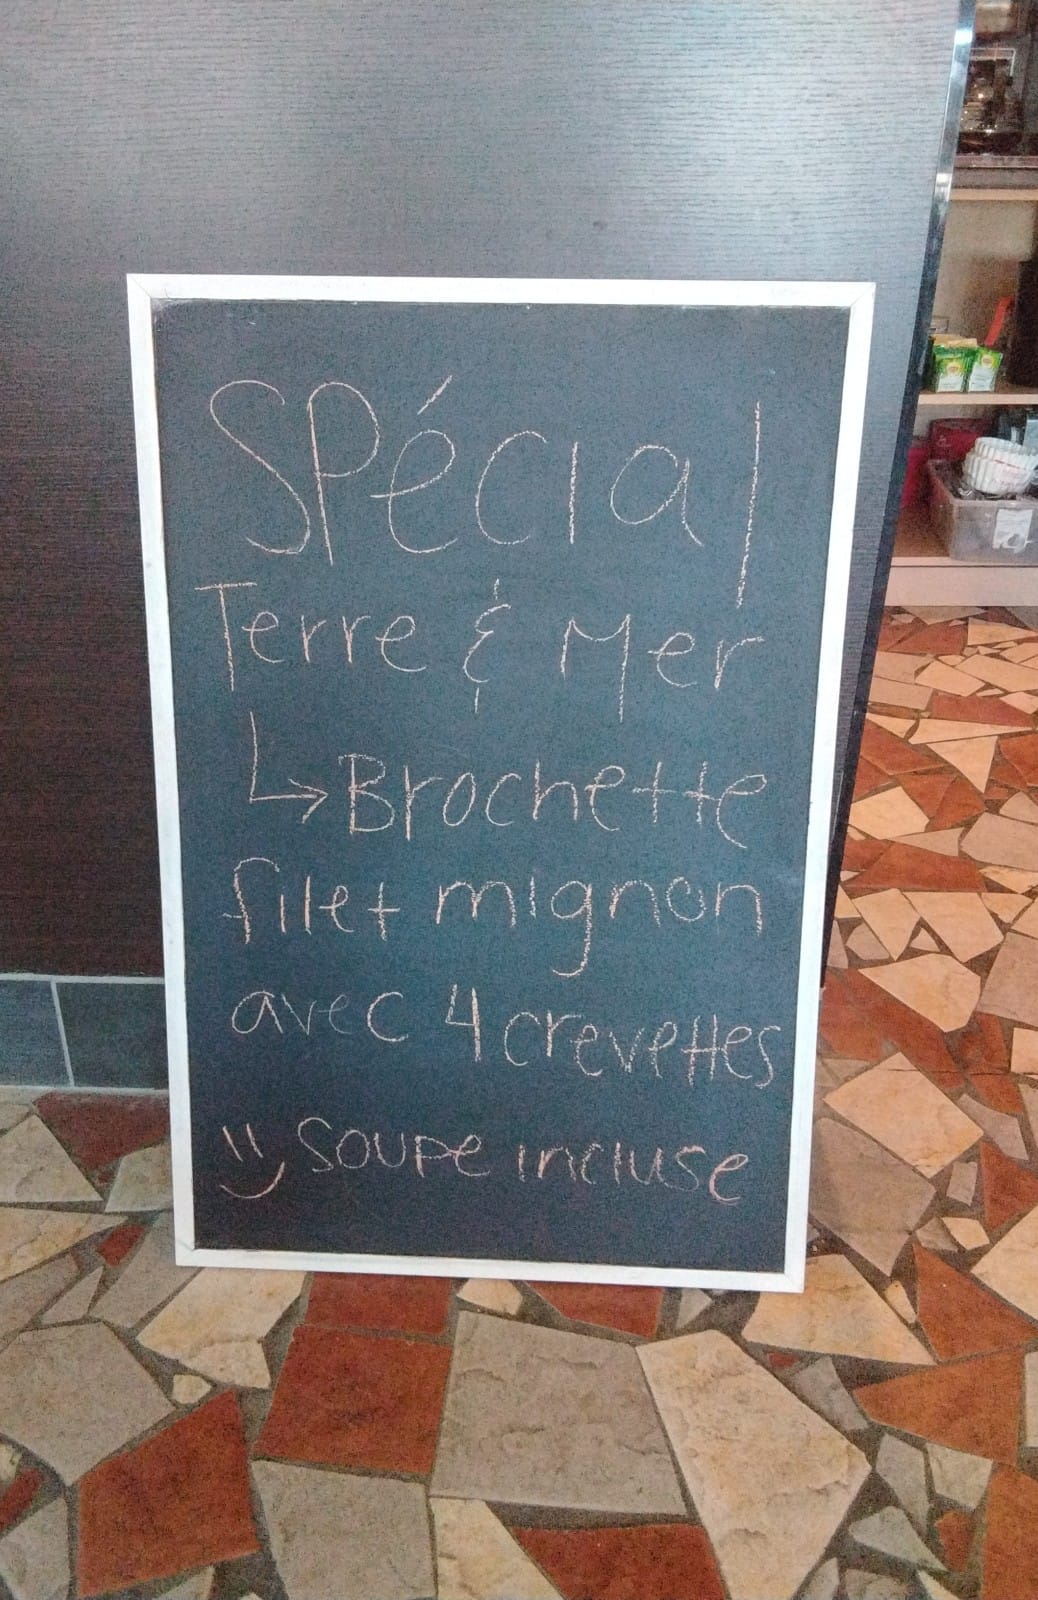 SPécial
Terre & Mer
↳ Brochette
filet mignon
avec 4 crevettes
:) Soupe incluse